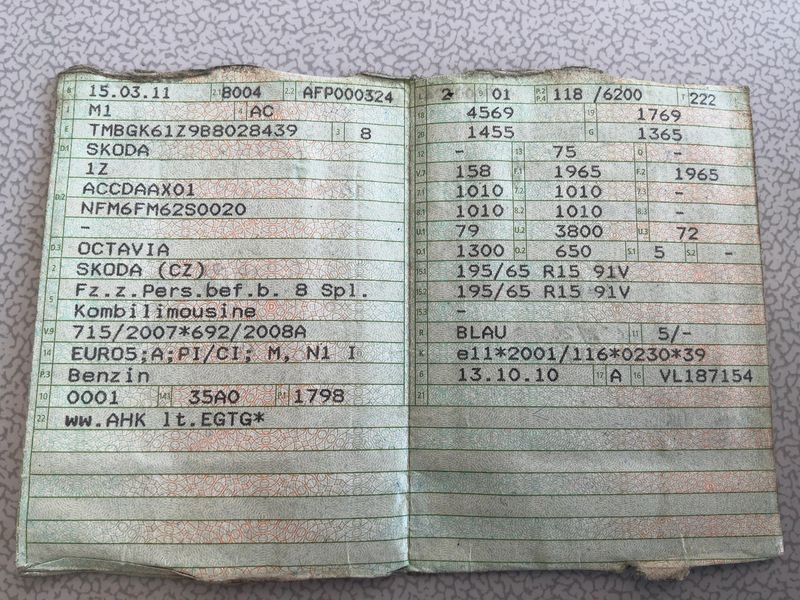 B 15.03.11 2.1 8004 2.2 AFP000324
J M1 4 AC
E TMBGK61Z9B8028439 3 8
D.1 SKODA
1Z
D.2 ACCDAAX01
NFM6FM62S0020
-
D.3 OCTAVIA
2 SKODA (CZ)
5 Fz.z.Pers.bef.b. 8 Spl.
Kombilimousine
V.9 715/2007*692/2008A
14 EURO5;A;PI/CI; M, N1 I
P.3 Benzin
10 0001 14.1 35A0 P.1 1798
22 ww.AHK lt.EGTG*
L 2 9 01 P.2 P.4 118 /6200 T 222
18 4569 19 1769
20 1455 G 1365
12 - 13 75 Q -
V.7 158 F.1 1965 F.2 1965
7.1 1010 7.2 1010 7.3 -
8.1 1010 8.2 1010 8.3 -
U.1 79 U.2 3800 U.3 72
O.1 1300 O.2 650 S.1 5 S.2 -
15.1 195/65 R15 91V
15.2 195/65 R15 91V
15.3 -
R BLAU 11 5/-
K e11*2001/116*0230*39
6 13.10.10 17 A 16 VL187154
21